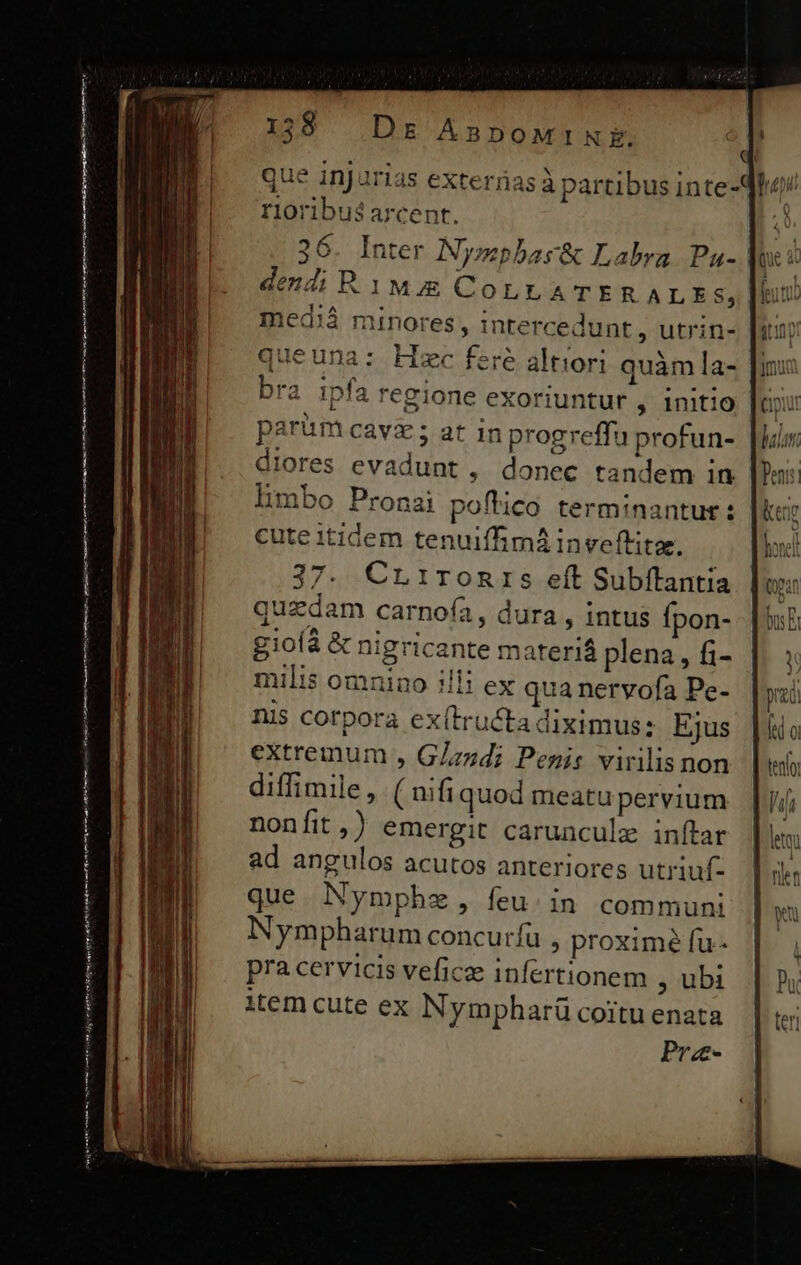 138 DE ABDOMINE.
que injurias externas à partibus inte-
rioribus arcent.
36. Inter Nymphas & Labra Pu-
dendi RIMÆ COLLATERALES,
mediâ minores, intercedunt, utrin-
que una: Hæc ferè altiori quàm la-
bra ipſa regione exoriuntur, initio
parùm cavæ; at in progreſſu profun-
diores evadunt, donec tandem in
limbo Pronai poſtico terminantur:
cute itidem tenuiſſimâ inveſtitæ.
37. CLITORIS eſt Subſtantia
quædam carnoſa, dura, intus ſpon-
gioſâ & nigricante materiâ plena, ſi-
milis omnino illi ex qua nervoſa Pe-
nis corpora exſtructa diximus: Ejus
extremum, Glandi Penis virilis non
diſſimile, (niſi quod meatu pervium
non ſit,) emergit carunculæ inſtar
ad angulos acutos anteriores utriuſ-
que Nymphæ, ſeu in communi
Nympharum concurſu, proximè ſu-
pra cervicis veſicæ inſertionem, ubi
item cute ex Nympharū coïtu enata
Præ-